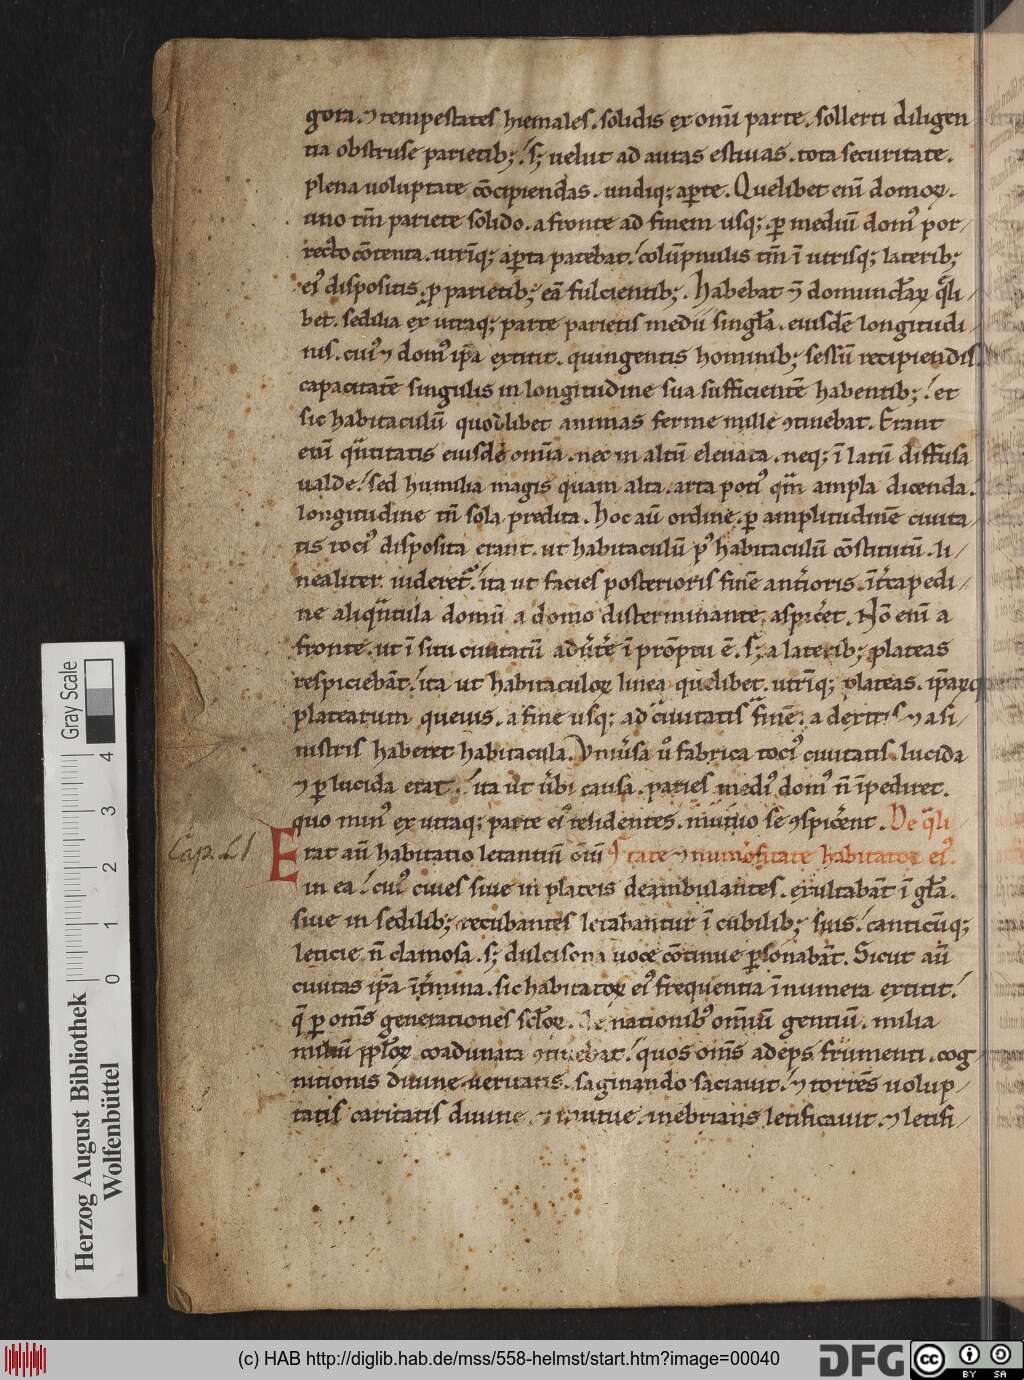 gora. ⁊ tempestates hiemales. solidis ex om̄i parte. sollerti diligen
tia obstruse parietib;. s; uelut ad auras estiuas. tota securitate.
plena uoluptate cōcipiendas. undiq; aꝑte. Quelibet eni̅ domoꝝ.
uno tm̅ pariete solido. a fronte ad finem usq; ꝑ mediū domꝰ por/
recto cōtenta. utri̅q; aꝑta patebat. colūpnulis tm̅ ī utrisq; laterib;
eiꝰ dispositis. ꝓ parietib; eā fulcientib;. Habebat ⁊ domunclaꝝ q̄li/
bet. sedilia ex utraq; parte parietis medii singla. eiusdē longitudi
nis. cuiꝰ ⁊ domꝰ ip̄a extitit. quingentis hominib; sessū recipiendis
capacitatē singulis in longitudine sua sufficientē habentib; et
sic habitaculū quodlibet animas ferme mille ꝯtinebat. Erant
eni̅ q̄ntitatis eiusdē om̄ia. nec in altū eleuata. neq; ī latū diffusa
ualde. sed humilia magis quam alta. arta potiꝰ q̄m ampla dicenda.
longitudine tn̄ sola predita. Hoc aū ordine. ꝑ amplitudinē ciuita
tis tociꝰ disposita erant. ut habitaculū pꝰ habitaculū cōstitutū. li/
nealiter uideret᷑. ita ut facies posterioris finē anteioris. īt̄capedi/
ne aliq̄ntula domū a domo disterminante, aspic̄et. Nō eni̅ a
fronte. ut ī situ ciuitatū adūt̄e ī prōptu ē. s; a laterib; plateas
respiciebāt. ita ut habitaculoꝝ linea quelibet. utri̅q; plateas. ip̄aꝝq
platearum queuis. a fine usq; ad ciuitatis finē. a dextris ⁊ a si/
nistris haberet habitacula. Vniu̅sa u̅ fabrica tociꝰ ciuitatis. lucida
⁊ ꝑlucida erat. ita ut ubi causa. paries mediꝰ domꝰ n̄ īpediret.
quo minꝰ ex utraq; parte eiꝰ residentes. mutuo se ꝯspic̄ent. De q̄li
Erat aū habitatio letantiū om̄iū tate ⁊ num̄ositate habitatoꝝ eiꝰ.
Cap. LI
in ea. cuiꝰ ciues siue in plateis deambulantes. exultabāt ī gl̄a.
siue in sedilib; recubantes letabantur ī cubilib; suis. canticūq;
leticie n̄ clamosa. s; dulcisona uoce cōtinue ꝑsonabāt. Sicut aū
ciuitas ip̄a īt̄mina. sic habitatoꝝ eiꝰ frequentia īnumera extitit.
q̄ ꝑ om̄s generationes sc̄loꝝ. de nationibꝰ om̄iū gentiū. milia
miliū pp̄loꝝ coadunata ꝯtinebat. quos om̄s adeps frumenti. cog
nitionis diuine ueritatis. saginando saciauit. ⁊ torrēs uolup/
tatis caritatis diuine. ⁊ mutue. inebrians letificauit. ⁊ letifi/
Gray Scale
0 1 2 3 4
Herzog August Bibliothek
Wolfenbüttel
(c) HAB http://diglib.hab.de/mss/558-helmst/start.htm?image=00040
DFG
cc BY SA